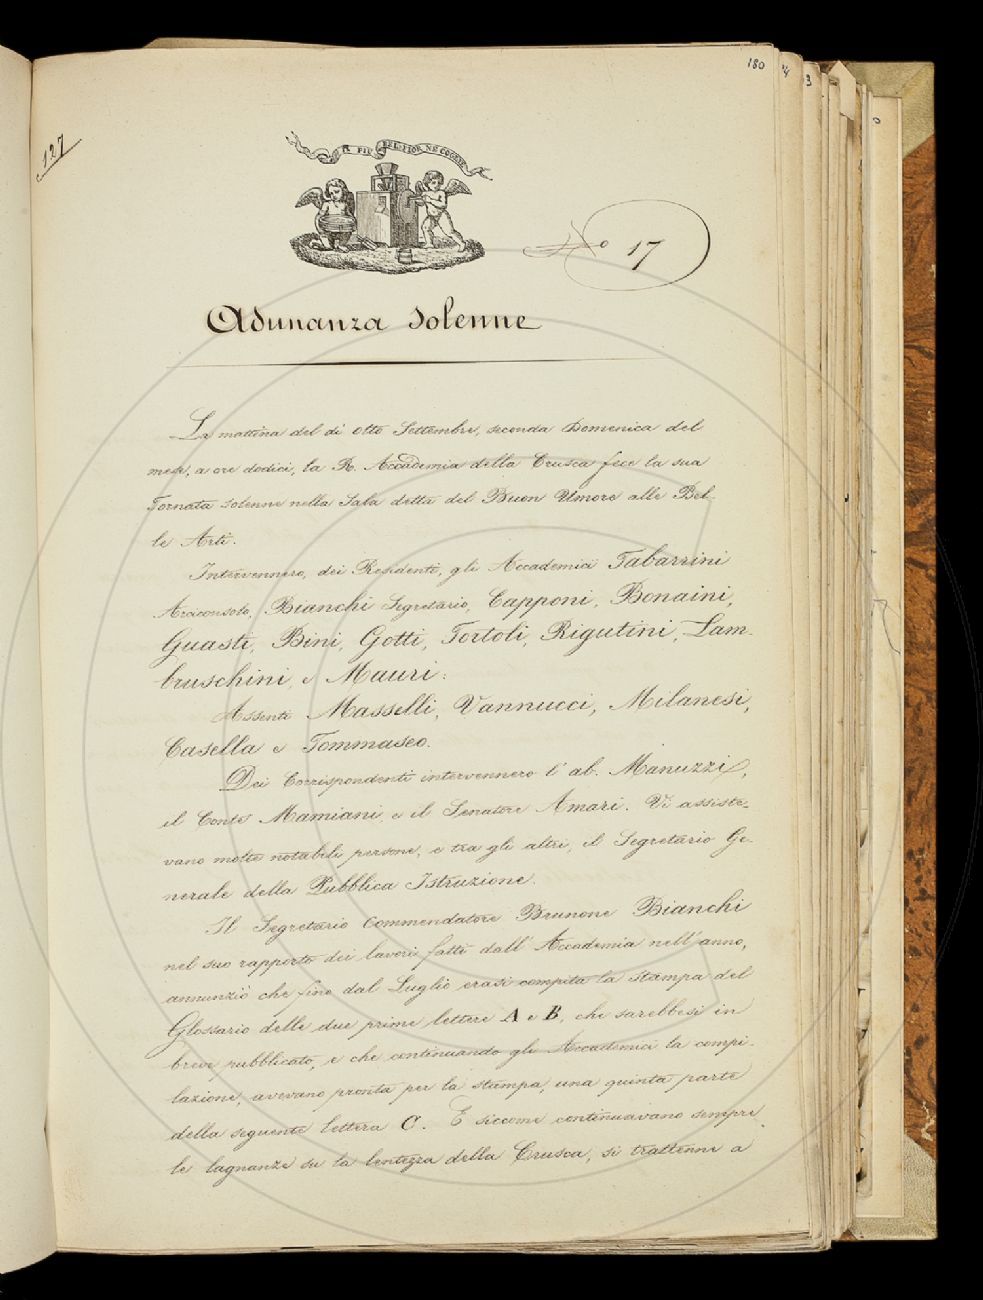 180
127
IL PIÙ BEL FIOR NE COGLIE
No 17
Adunanza Solenne
La mattina del dì otto Settembre, seconda Domenica del
mese, a ore dodici, la R. Accademia della Crusca fece la sua
Tornata solenne nella Sala detta del Buon Umore alle Bel-
le Arti.
Intervennero, dei Residenti, gli Accademici Tabarrini
Arciconsolo, Bianchi Segretario, Capponi, Bonaini,
Guasti, Bini, Gotti, Tortoli, Rigutini, Lam-
bruschini, e Mauri:
Assenti Masselli, Vannucci, Milanesi,
Casella e Tommaseo.
Dei Corrispondenti intervennero l'ab. Manuzzi,
il Conte Mamiani, e il Senatore Amari. Vi assiste-
vano molte notabili persone, e tra gli altri, il Segretario Ge-
nerale della Pubblica Istruzione.
Il Segretario Commendatore Brunone Bianchi
nel suo rapporto dei lavori fatti dall'Accademia nell'anno,
annunziò che fino dal Luglio erasi compita la stampa del
Glossario delle due prime lettere A e B, che sarebbesi in
breve pubblicato, e che continuando gli Accademici la compi-
lazione, avevano pronta per la stampa, una quinta parte
della seguente lettera C. E siccome continuavano sempre
le lagnanze su la lentezza della Crusca, si trattenne a